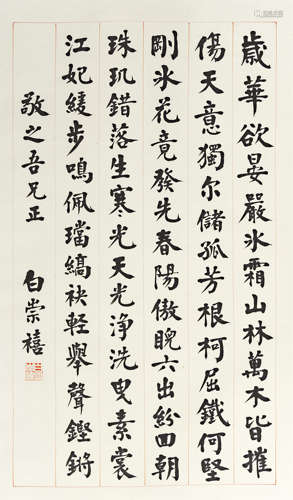 歲華欲晏嚴氷霜山林萬木皆摧
傷天意獨尔儲孤芳根柯屈鐵何堅
剛氷花竟發先春陽傲睨六出紛
珠璣錯落生寒光天光浄洗曳素裳
江妃緩步鳴佩璫縞袂輕舉聲鏗鏘
敬之吾兄正
白崇禧